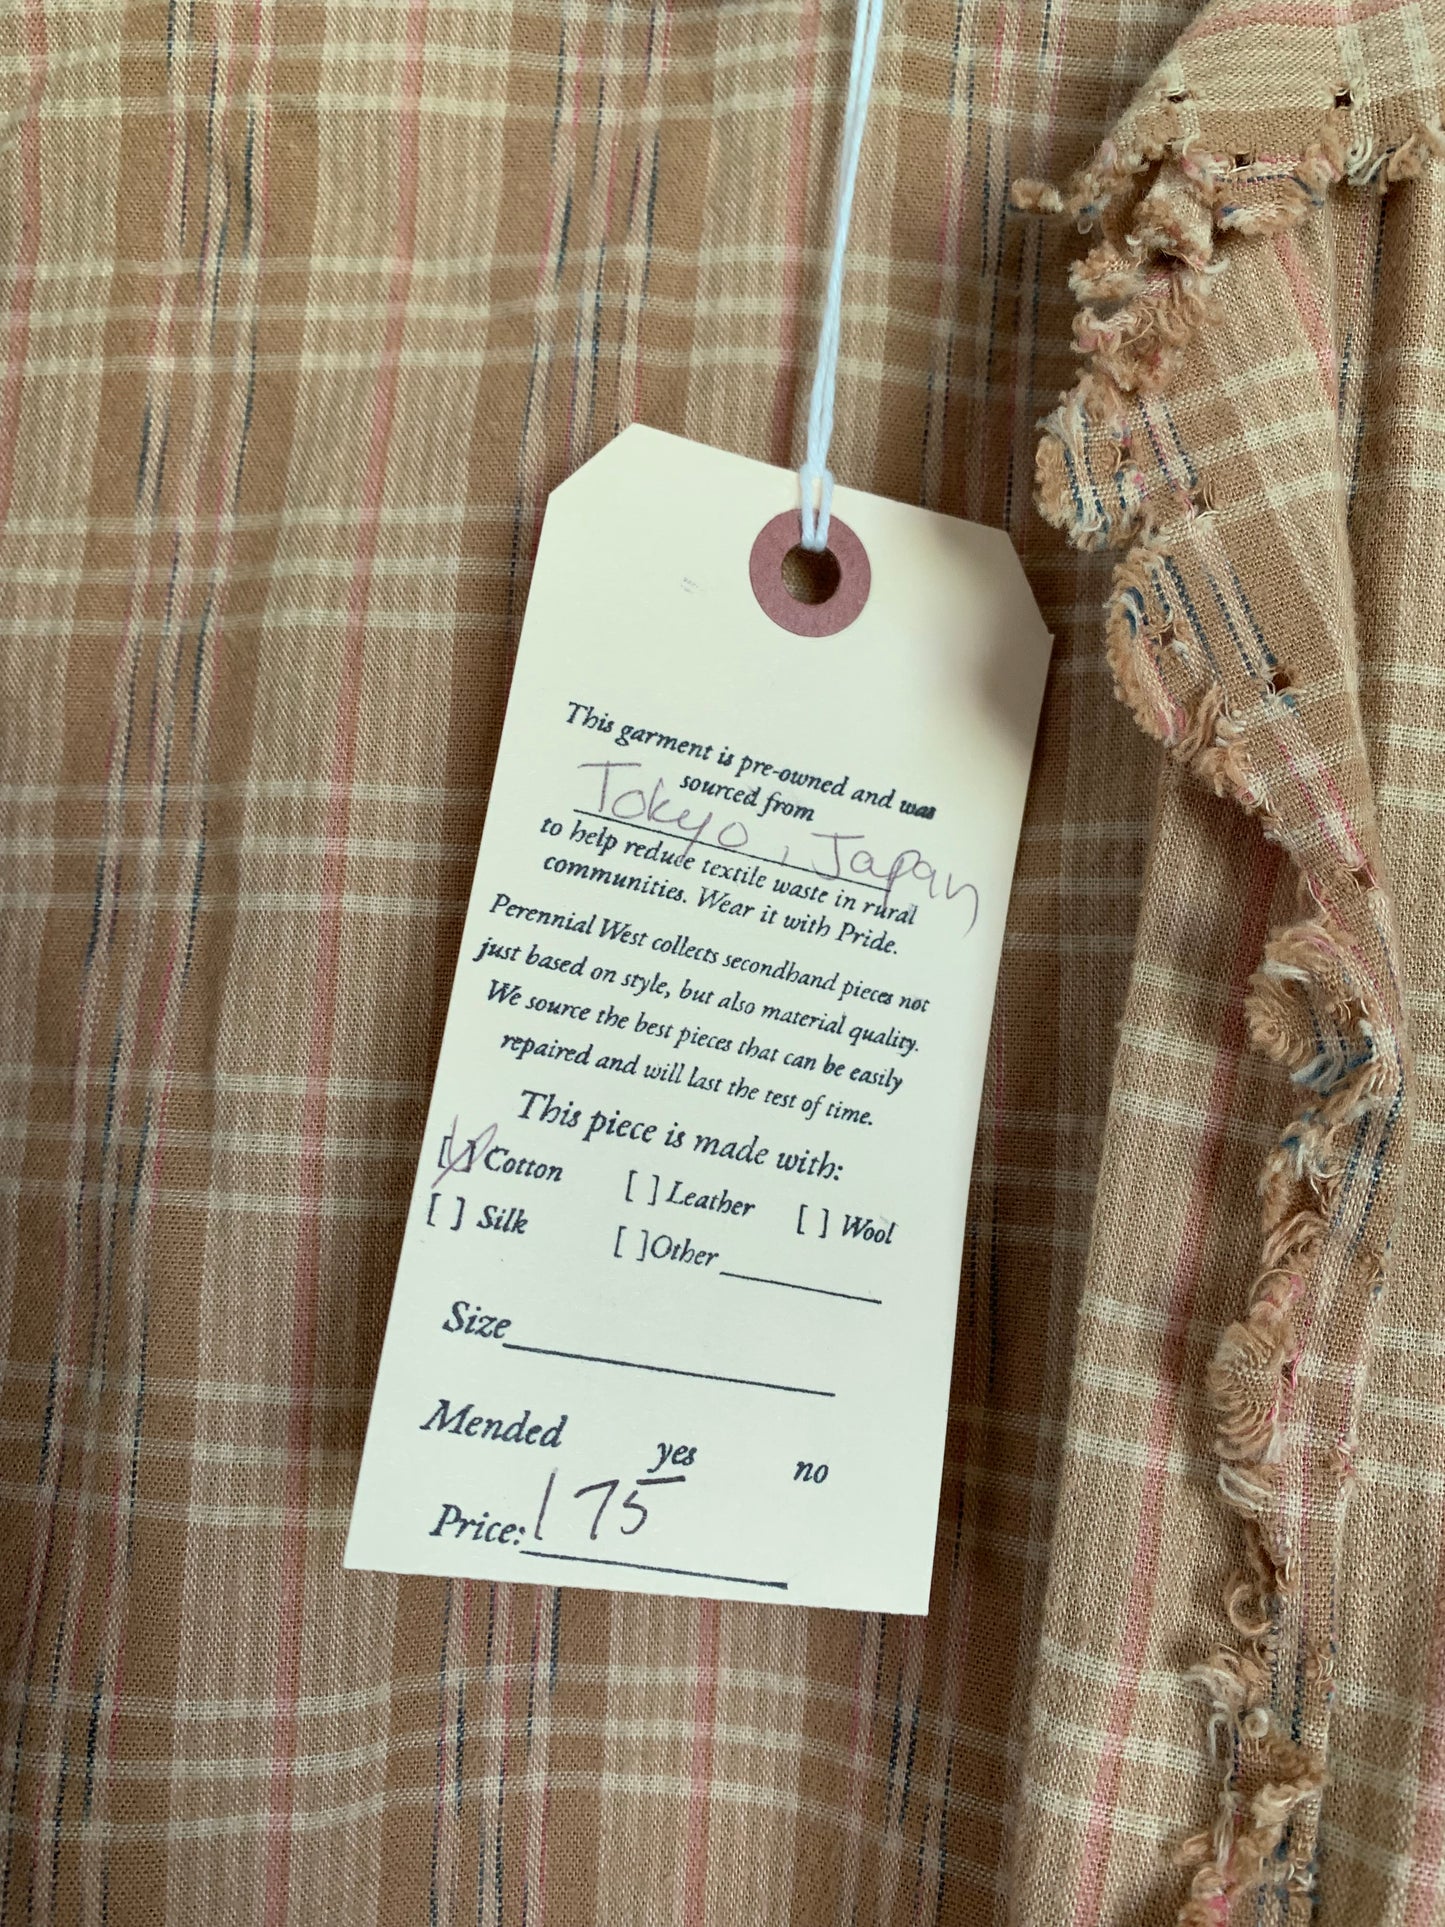 This garment is pre-owned and was
sourced from
Tokyo, Japan
to help reduce textile waste in rural
communities. Wear it with Pride.
Perennial West collects secondhand pieces not
just based on style, but also material quality.
We source the best pieces that can be easily
repaired and will last the test of time.
This piece is made with:
[ ] Cotton [ ] Leather [ ] Wool
[ ] Silk [ ]Other
Size
Mended yes no
Price: 175